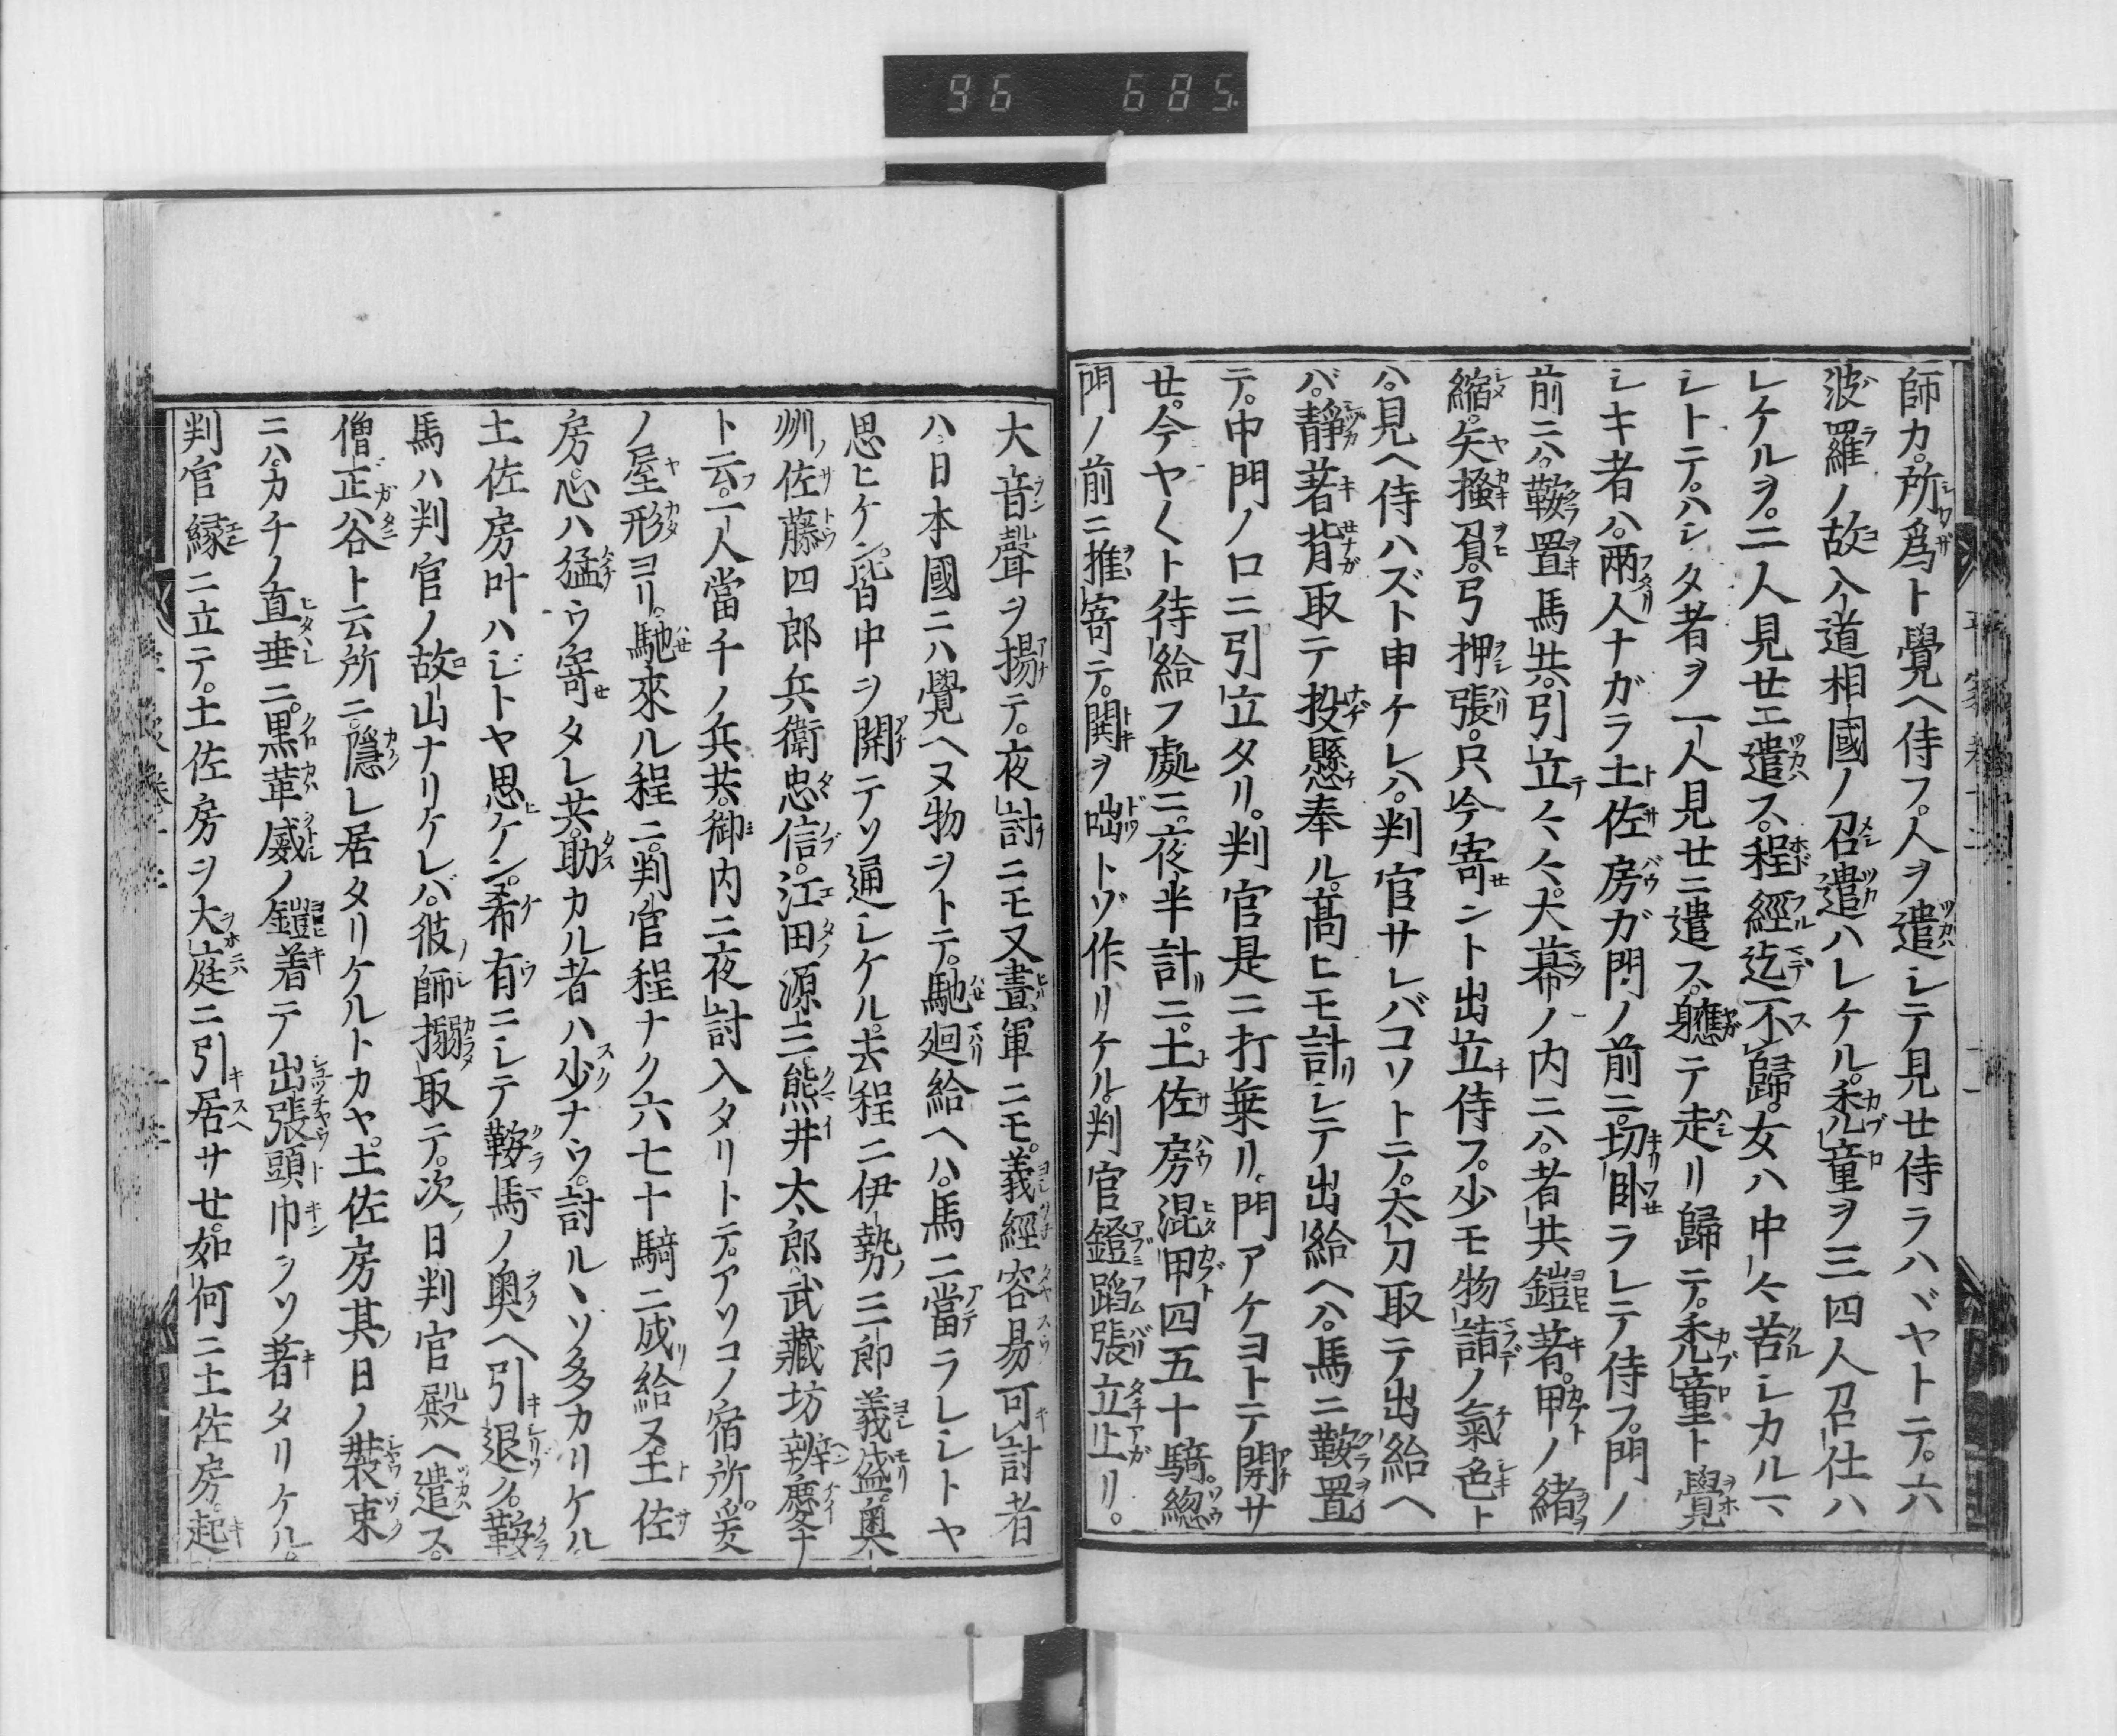 96 685
師カ。所爲ト覺ヘ侍フ。人ヲ遣シテ見せ侍ラハヾヤトテ。六
波羅ノ故入道相國ノ召遣ハレケル。禿童ヲ三四人召仕ハ
レケルヲ。二人見せエ遣ス。程經迄不歸。女ハ中々苦シカルマ
シトテ。ハシタ者ヲ一人見せニ遣ス。軈テ走リ歸テ。禿童ト覺
シキ者ハ。兩人ナガラ土佐房ガ門ノ前ニ。切臥ラレテ侍フ。門ノ
前ニハ。鞍置馬共。引立テ々々。大幕ノ内ニハ。者共鎧著。甲ノ緒
縮。矢搔負。弓押張。只今寄せント出立侍フ。少モ物詣ノ氣色ト
ハ。見ヘ侍ハズト申ケレハ。判官サレバコソトテ。太刀取テ出給ヘ
バ。靜著背取テ投懸奉ル。髙ヒモ計シテ出給ヘハ。馬ニ鞍置
テ。中門ノ口ニ引立タリ。判官是ニ打乗リ。門アケヨトテ開サ
せ。今ヤ〱ト待給フ處ニ。夜半計ニ。土佐房混甲四五十騎。惣
門ノ前ニ推寄テ。閧ヲ咄トゾ作リケル。判官鐙蹈張立上リ。
大音聲ヲ揚テ。夜討ニモ又晝軍ニモ。義經容易可討者
ハ日本國ニハ覺ヘヌ物ヲトテ。馳廻給ヘハ。馬ニ當ラレシトヤ
思ヒケン。皆中ヲ開テソ通シケル。去程ニ伊勢三郎義盛。奥
州佐藤四郎兵衛忠信。江田源三熊井太郎武藏坊辨慶ナ
ト云。一人當千ノ兵共。御内ニ夜討入タリトテ。アソコノ宿所。爰
ノ屋形ヨリ。馳來ル程ニ。判官程ナク六七十騎ニ成給ヌ。土佐
房心ハ猛ウ寄タレ共。助カル者ハ少ナウ。討ルヽソ多カリケル
土佐房叶ハジトヤ思ケン。希有ニシテ鞍馬ノ奥ヘ引退ク。鞍
馬ハ判官ノ故山ナリケレバ。彼師搦取テ。次日判官殿ヘ遣ス。
僧正谷ト云所ニ。隱レ居タリケルトカヤ。土佐房其日ノ裝束
ニハ。カチノ直垂ニ。黒革威ノ鎧着テ出張頭巾ヲソ著タリケル。
判官縁ニ立テ。土佐房ヲ大庭ニ引居サせ。如何ニ土佐房。起